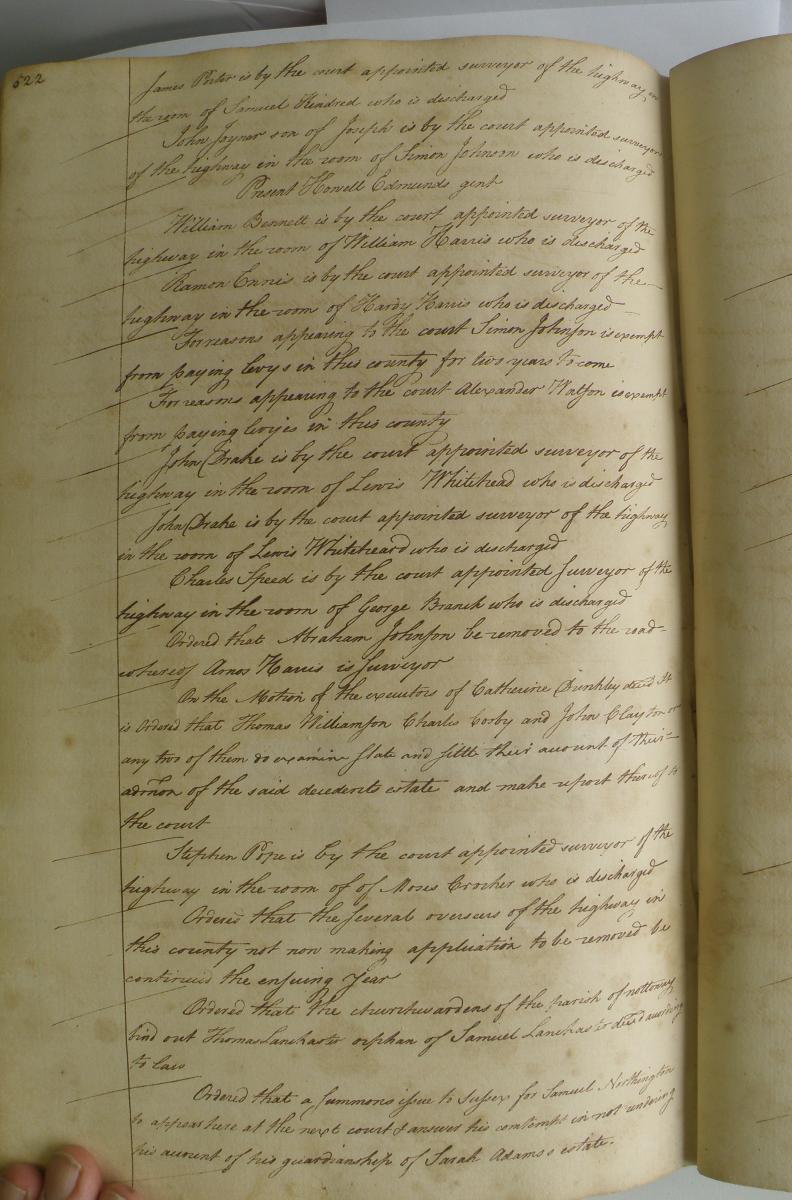 522
James Porter is by the court appointed surveyor of the highway in
the room of Samuel Kindred who is discharged
John Joyner son of Joseph is by the court appointed surveyor
of the highway in the room of Simon Johnson who is discharged
Present Howell Edmunds gent
William Bennett is by the court appointed surveyor of the
highway in the room of William Harris who is discharged
Ramon Ennis is by the court appointed surveyor of the
highway in the room of Hardy Harris who is discharged
For reasons appearing to the court Simon Johnson is exempt
from paying levys in this county for two years to come
For reasons appearing to the court Alexander Watson is exempt
from paying levyes in this county
John Drake is by the court appointed surveyor of the
highway in the room of Lewis Whitehead who is discharged
John Drake is by the court appointed surveyor of the highway
in the room of Lewis Whitehead who is discharged
Charles Speed is by the court appointed surveyor of the
highway in the room of George Branch who is discharged
Ordered that Abraham Johnson be removed to the road
whereof Amos Harris is surveyor
On the Motion of the executors of Catherine Dunkley deced It
is Ordered that Thomas Williamson Charles Corby and John Clayton or
any two of them do examine state and settle their account of their
admon of the said decedents estate and make report thereof to
the court
Stephen Pope is by the court appointed surveyor of the
highway in the room of of Moses Crocker who is discharged
Ordered that the several overseers of the highway in
this county not now making application to be removed be
continued the ensuing year
Ordered that the churchwardens of the parish of nottoway
bind out Thomas Lanchaster orphan of Samuel Lanchaster deced according
to law
Ordered that a summons issue to Sussex for Samuel Northington
to appear here at the next court & answer his contempt in not rendering
his account of his guardianship of Sarah Adams's estate.